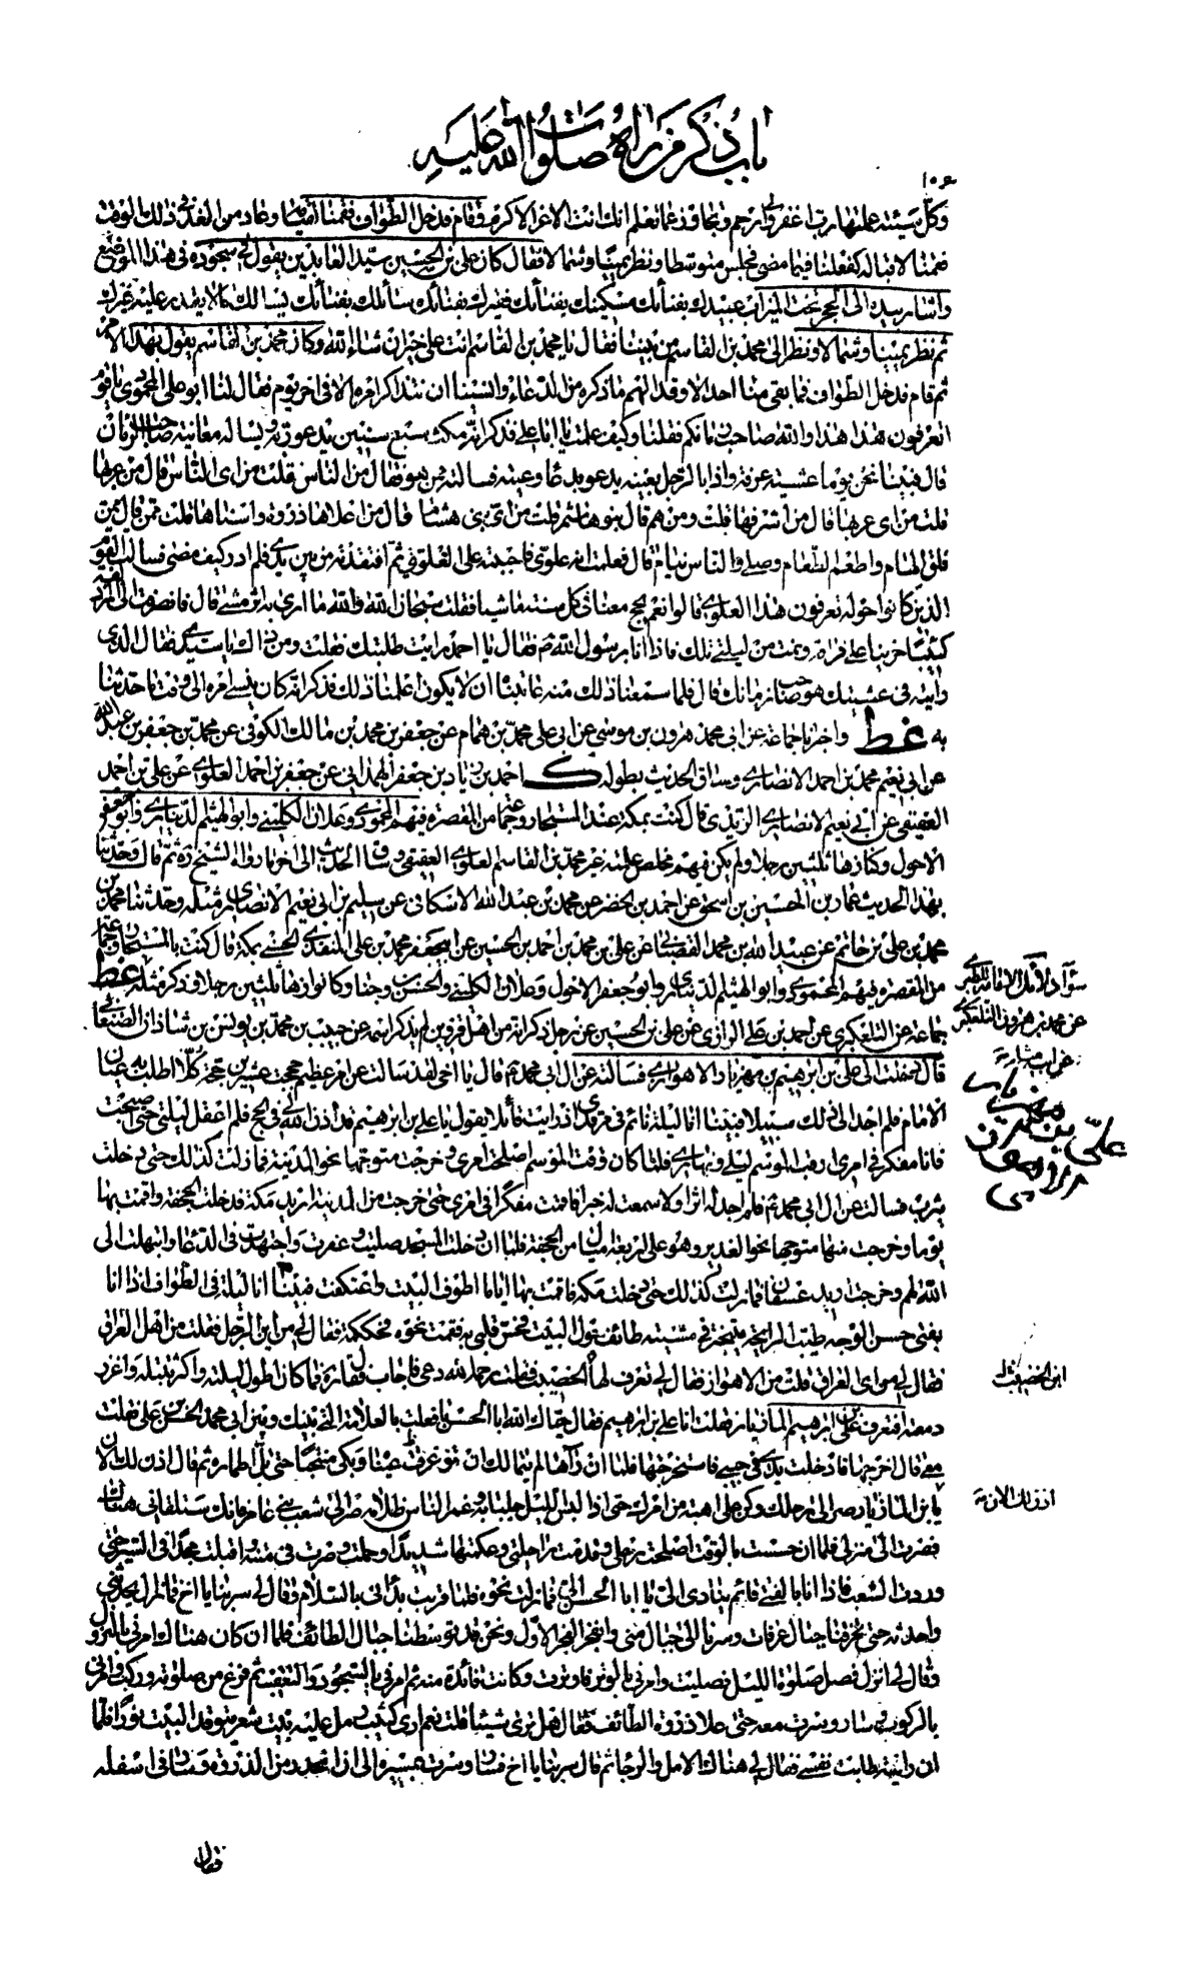 باب ذكر من رآه صلوات الله عليه
١٠٦
وكل سيئة عملتها رب اغفر لي وارحم وتجاوز عما تعلم انك انت الاعز الاكرم وقام فدخل الطواف فقمنا لقيامه وعاد من الغد في ذلك الوقت
فقمنا لاقباله كفعلنا فيما مضى فجلس متوسطا ونظر يمينا وشمالا فقال كان علي بن الحسين سيد العابدين يقول في سجوده في هذا الموضع
واشار بيده الى الحجر تحت الميزاب عبيدك بفنائك مسكينك بفنائك فقيرك بفنائك سائلك بفنائك يسالك ما لا يقدر عليه غيرك
ثم نظر يمينا وشمالا ونظر الى محمد بن القاسم من بيننا فقال يا محمد بن القاسم انت على خير ان شاء الله وكان محمد بن القاسم يقول بهذا الامر
ثم قام فدخل الطواف فما بقي منا احد الا وقد الهم ما ذكره من الدعاء وانسينا ان نتذاكر امره الا في اخر يوم فقال لنا ابو علي المحمودي يا قوم
اتعرفون هذا هذا والله صاحب زمانكم فقلنا وكيف علمت يا ابا علي فذكر انه مكث سبع سنين يدعو ربه ويساله معاينة صاحب الزمان
قال فبينا نحن يوما عشية عرفة واذا بالرجل بعينه يدعو بدعاء وعيته فسالته ممن هو فقال من الناس قلت من اي الناس قال من عربها
قلت من اي عربها قال من اشرفها قلت ومن هم قال بنو هاشم قلت من اي بني هاشم قال من اعلاها ذروة واسناها قلت ممن قال ممن
فلق الهام واطعم الطعام وصلى والناس نيام قال فعلمت انه علوي فاحببته على العلوية ثم افتقدته من بين يدي فلم ادر كيف مضى فسالت القوم
الذين كانوا حوله تعرفون هذا العلوي قالوا نعم يحج معنا في كل سنة ماشيا فقلت سبحان الله والله ما ارى به اثر مشي قال فانصرفت الى المزدلفة
كئيبا حزينا على فراقه ونمت من ليلتي تلك فاذا انا برسول الله ص فقال يا احمد رايت طلبتك فقلت ومن ذاك يا سيدي فقال الذي
رايته في عشيتك هو صاحب زمانك قال فلما سمعنا ذلك منه عاتبناه ان لا يكون اعلمنا ذلك فذكر انه كان ينسى امره الى وقت ما حدثنا
به غط واخبرنا جماعة عن ابي محمد هرون بن موسى عن ابي علي محمد بن همام عن جعفر بن محمد بن مالك الكوفي عن محمد بن جعفر بن عبد الله
عن ابي نعيم محمد بن احمد الانصاري وساق الحديث بطوله ك احمد بن زياد بن جعفر الهمداني عن جعفر بن احمد العلوي عن علي بن احمد
العقيقي عن ابي نعيم الانصاري الزيدي قال كنت بمكة عند المستجار وجماعة من المقصرة فيهم المحمودي وعلان الكليني وابو الهيثم الديناري وابو جعفر
الاحول وكنا زهاء ثلثين رجلا ولم يكن فيهم مخلص علمته غير محمد بن القاسم العلوي العقيقي وساق الحديث الى اخر ما رواه الشيخ ره ثم قال وحدثنا
بهذا الحديث عمار بن الحسين بن اسحق عن احمد بن الخضر عن محمد بن عبد الله الاسكافي عن سليم بن ابي نعيم الانصاري مثله وحدثنا محمد بن
محمد بن علي بن حاتم عن عبيد الله بن محمد القصباني عن علي بن محمد بن احمد بن الحسين عن ابي جعفر محمد بن علي المنقذي الحسني بمكة قال كنت بالمستجار وجماعة
من المقصرة فيهم المحمودي وابو الهيثم الديناري وابو جعفر الاحول وعلان الكليني والحسن بن وجناء وكانوا زهاء ثلثين رجلا وذكر مثله غط
جماعة عن التلعكبري عن احمد بن علي الرازي عن علي بن الحسين عن رجل ذكر انه من اهل قزوين لم يذكر اسمه عن حبيب بن محمد بن يونس بن شاذان الصنعاني
قال دخلت الى علي بن ابرهيم بن مهزيار الاهوازي فسالته عن ال ابي محمد ع قال يا اخي لقد سالت عن امر عظيم حججت عشرين حجة كلا اطلب به عيان
الامام فلم اجد الى ذلك سبيلا فبينا انا ليلة نائم في مرقدي اذ رايت قائلا يقول يا علي بن ابرهيم قد اذن الله لي في الحج فلم اعقل ليلتي حتى اصبحت
فانا مفكر في امري ارقب الموسم ليلي ونهاري فلما كان وقت الموسم اصلحت امري وخرجت متوجها نحو المدينة فما زلت كذلك حتى دخلت
يثرب فسالت عن ال ابي محمد ع فلم اجد له اثرا ولا سمعت له خبرا فاقمت مفكرا في امري حتى خرجت من المدينة اريد مكة فدخلت الجحفة واقمت بها
يوما وخرجت منها متوجها نحو الغدير وهو على اربعة اميال من الجحفة فلما ان دخلت المسجد صليت وعفرت واجتهدت في الدعاء وابتهلت الى
الله لهم وخرجت اريد عسفان فما زلت كذلك حتى دخلت مكة فاقمت بها اياما اطوف البيت واعتكفت فبينا انا ليلة في الطواف اذا انا
بفتى حسن الوجه طيب الرايحة يتبختر في مشيته طائف حول البيت فحس قلبي به فقمت نحوه فحككته فقال لي من اين الرجل فقلت من اهل العراق
فقال لي من اي العراق قلت من الاهواز فقال لي تعرف بها الخضيب فقلت رحمه الله دعي فاجاب فقال رحمه الله فما كان اطول ليلته واكثر تبتله واغزر
دمعته افتعرف علي بن ابرهيم المازيار فقلت انا علي بن ابرهيم فقال حياك الله ابا الحسن ما فعلت بالعلامة التي بينك وبين ابي محمد الحسن بن علي فقلت
معي قال اخرجها فادخلت يدي في جيبي فاستخرجتها فلما ان رآها لم يتمالك ان تغرغرت عيناه وبكى منتحبا حتى بل اطماره ثم قال اذن لك الان
يا بن المازيار صر الى رحلك وكن على اهبة من امرك حتى اذا لبس الليل جلبابه وغمر الناس ظلامه صر الى شعب بني عامر فانك ستلقاني هناك
فصرت الى منزلي فلما ان حسست بالوقت اصلحت رحلي وقدمت راحلتي وعكمتها شديدا وحملت وصرت في متنه واقبلت مجدا في السير حتى
وردت الشعب فاذا انا بالفتى قائم ينادي الي يا ابا الحسن الي فما زلت نحوه فلما قربت بداني بالسلام وقال لي سر بنا يا اخ فما زال يحدثني
واحدثه حتى تخرقنا جبال عرفات وسرنا الى جبال منى وانفجر الفجر الاول ونحن قد توسطنا جبال الطائف فلما ان كان هناك امرني بالنزول
وقال لي انزل فصل صلوة الليل فصليت وامرني بالوتر فاوترت وكانت فائدة منه ثم امرني بالسجود والتعقيب ثم فرغ من صلوته وركب وامرني
بالركوب وسار وسرت معه حتى علا ذروة الطائف فقال هل ترى شيئا قلت نعم ارى كثيب رمل عليه بيت شعر يتوقد البيت نورا فلما
ان رايته طابت نفسي فقال لي هناك الامل والرجا ثم قال سر بنا يا اخ فسار وسرت بمسيره الى ان انحدر من الذروة وسار في اسفله
فقال
عن محمد بن هرون التلعكبري
علي بن مهزيار الاهوازي
ابن الخضيب
اذن لك الان